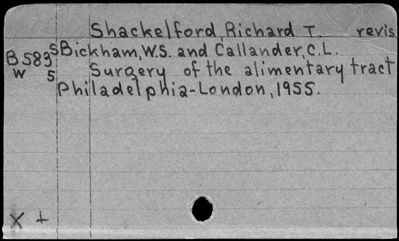 Shackelford, Richard T. revis
B583 SBickham, W.S. and Callander, C.L.
W 5 Surgery of the alimentary tract
Philadelphia-London, 1955.
X +